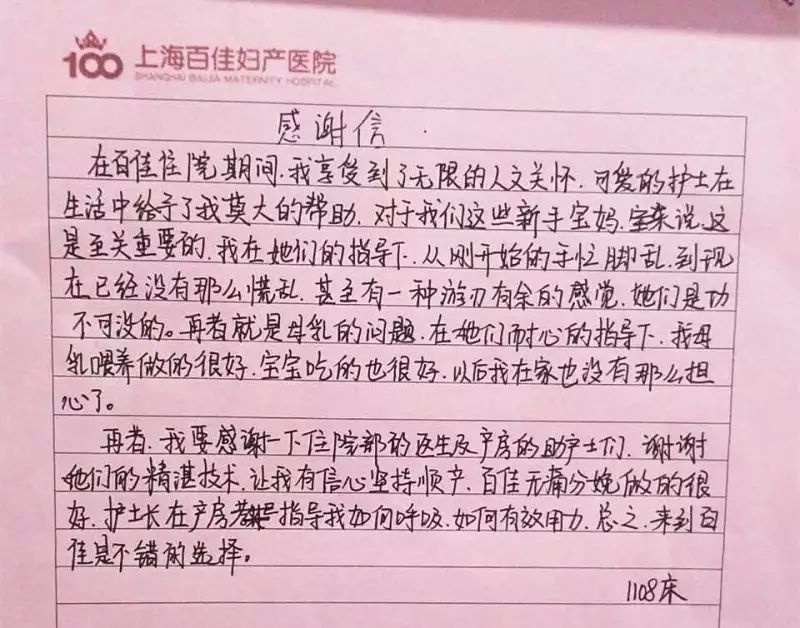 100 上海百佳妇产医院
SHANGHAI BAIJIA MATERNITY HOSPITAL
感谢信.
在百佳住院期间,我享受到了无限的人文关怀,可爱的护士在
生活中给予了我莫大的帮助,对于我们这些新手宝妈,宝来说,这
是至关重要的,我在她们的指导下,从刚开始的手忙脚乱,到现
在已经没有那么慌乱,甚至有一种游刃有余的感觉,她们是功
不可没的。再者就是母乳的问题,在她们耐心的指导下,我母
乳喂养做的很好,宝宝吃的也很好,以后我在家也没有那么担
心了。
再者,我要感谢一下住院部的医生及产房的助产士们,谢谢
她们的精湛技术,让我有信心坚持顺产,百佳无痛分娩做的很
好,护士长在产房指导我如何呼吸,如何有效用力,总之,来到百
佳是不错的选择。
1108床